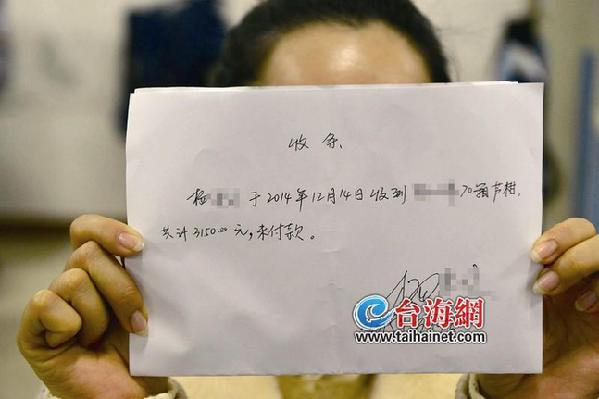 收条
杨 于2014年12月14日收到 70箱芦柑,
共计3150.00元,未付款。
台海網
www.taihainet.com